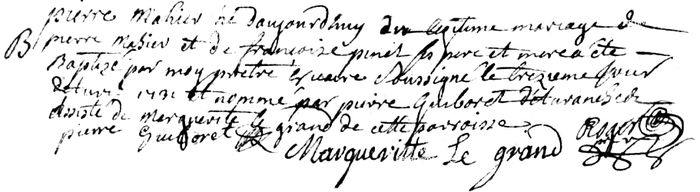 pierre mahier né daujourdhuy du legitime mariage de
B pierre mahier et de francoise pinel ses pere et mere a été
Baptizé par moy prêtre vicaire soussigné le trezieme jour
et nommé par pierre Guiboret
assisté de marguerite le grand de cette parroisse
pierre Guiboret Marguerite Le grand Roger